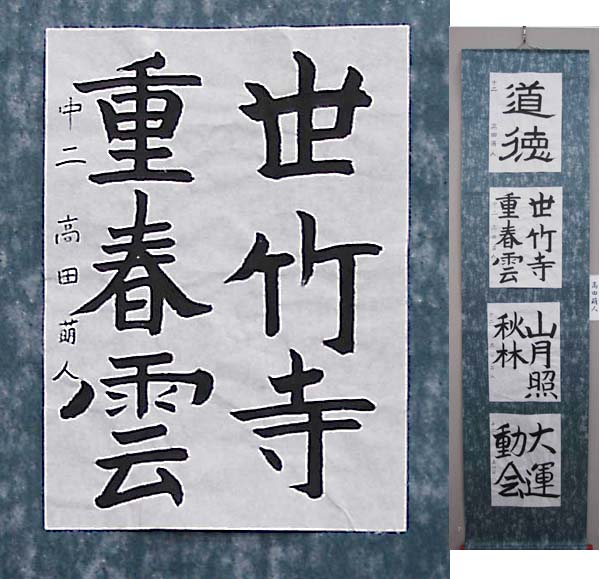 世竹寺
重春雲
中二 高田萌人
道徳
中二 高田萌人
世竹寺
重春雲
山月照
秋林
大運
動会
高田萌人